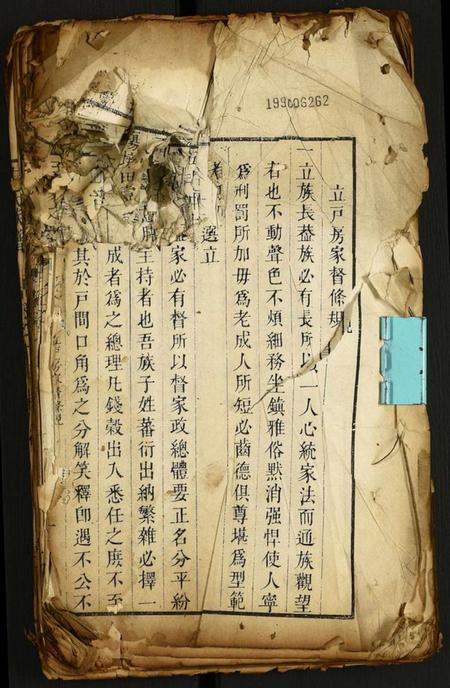 199606262
立戸房家督條規
一立族長葢族必有長所以一人心統家法而通族觀望
右也不動聲色不煩細務坐鎮雅俗默消强悍使人寜
爲刑罰所加毋爲老成人所短必齒德俱尊堪爲型範
者 選立
家必有督所以督家政總體要正名分平紛
主持者也吾族子姓蕃衍出納繁雜必擇一
成者爲之總理凡錢穀出入悉任之庻不至
其於戸間口角爲之分解笑釋卽遇不公不